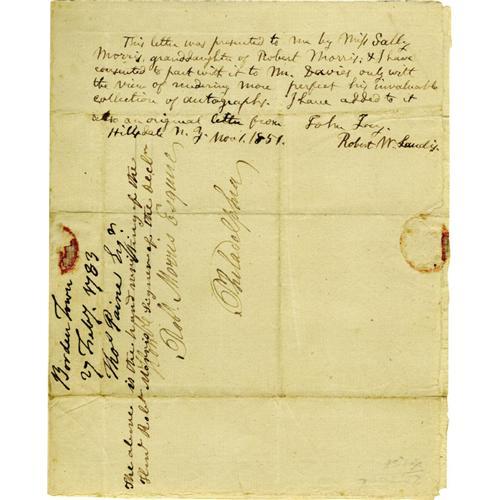 This letter was presented to me by Miss Sally
Morris, granddaughter of Robert Morris, & I have
consented to part with it to Mr. Davies only with
the view of rendering more perfect his invaluable
collection of autographs. I have added to it
also an original letter from John Jay.
Hillsdale N. Y. Nov 1. 1851. Robert W. Landis.
Robt. Morris Esquire
Philadelphia
Borden Town
27 Feby. 1783
Thos Paine Esqr
The above is the handwriting of the
Honl. Robt Morris signer of the decln